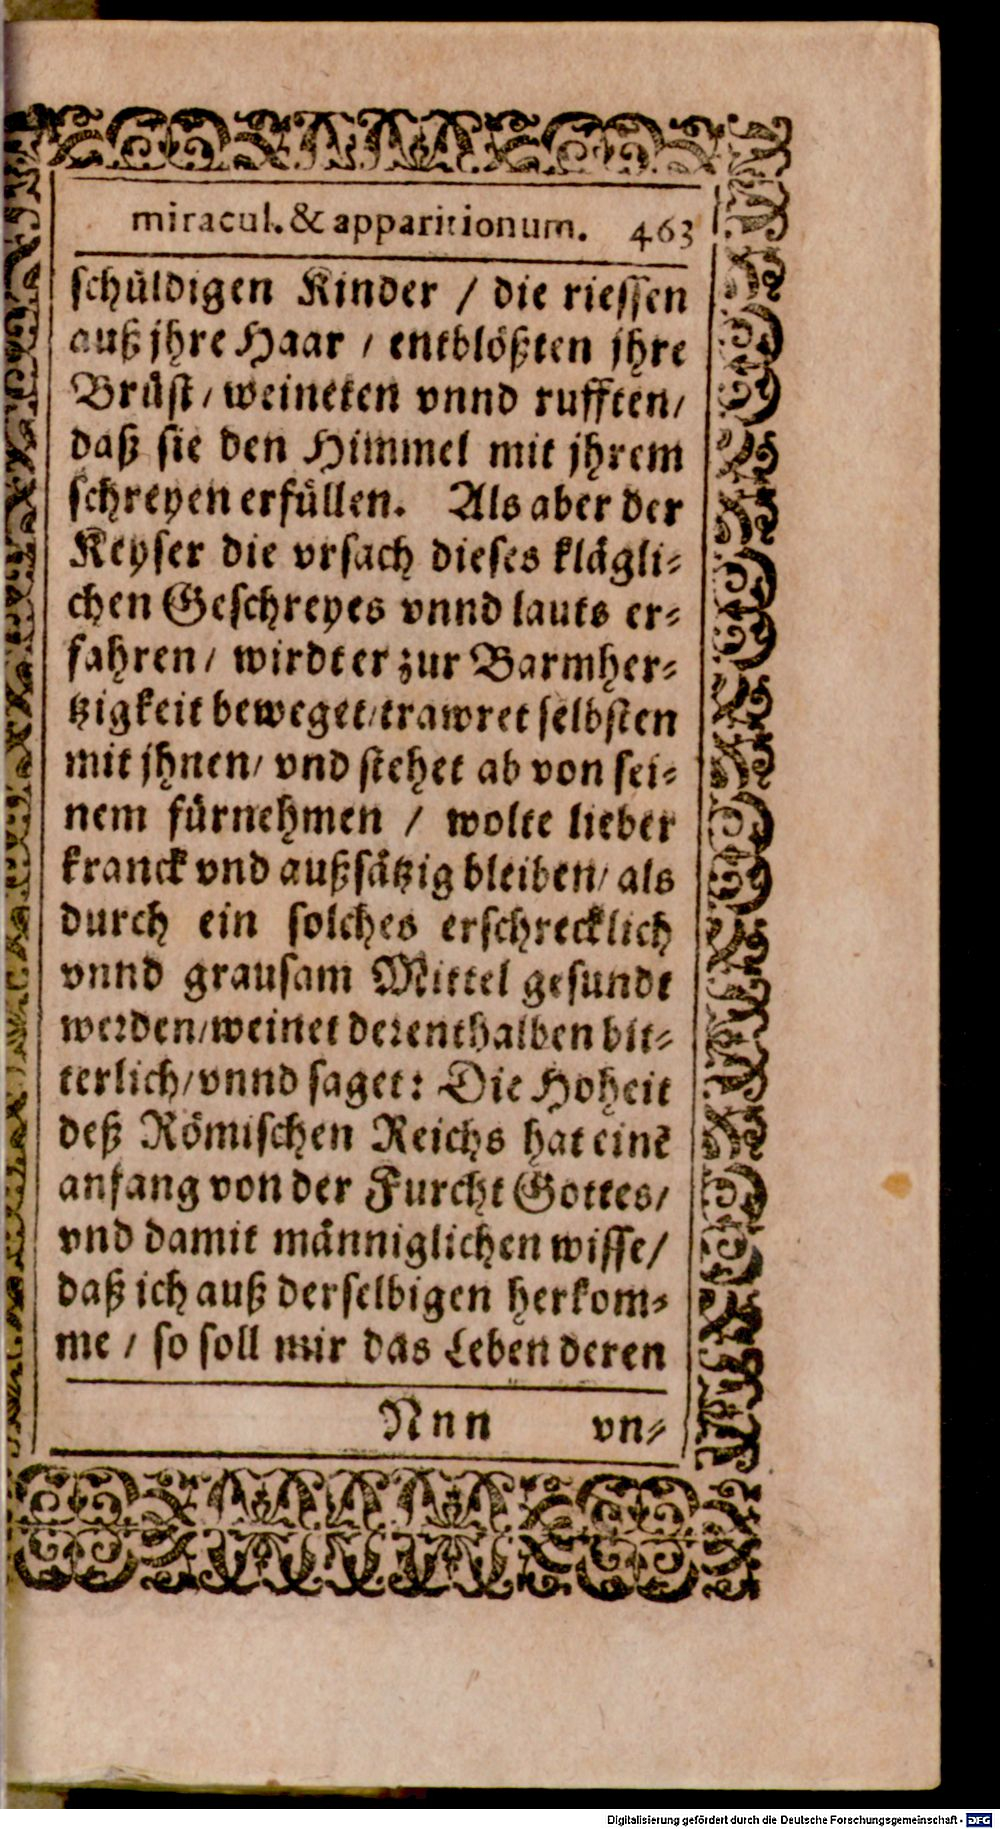 miracul. & apparitionum. 463
schuͤldigen Kinder / die riessen
auß jhre Haar / entbloͤßten jhre
Bruͤst / weineten vnnd rufften /
daß sie den Himmel mit jhrem
schreyen erfuͤllen. Als aber der
Keyser die vrsach dieses klaͤgli⸗
chen Geschreyes vnnd lauts er⸗
fahren / wirdt er zur Barmher⸗
tzigkeit beweget / trawret selbsten
mit jhnen / vnd stehet ab von sei⸗
nem fuͤrnehmen / wolte lieber
kranck vnd außsaͤtzig bleiben / als
durch ein solches erschrecklich
vnnd grausam Mittel gesundt
werden / weinet derenthalben bit⸗
terlich / vnnd saget: Die Hoheit
deß Roͤmischen Reichs hat einẽ
anfang von der Furcht Gottes /
vnd damit maͤnniglichen wisse /
daß ich auß derselbigen herkom⸗
me / so soll mir das Leben deren
Nnn vn⸗
Digitalisierung gefördert durch die Deutsche Forschungsgemeinschaft - DFG